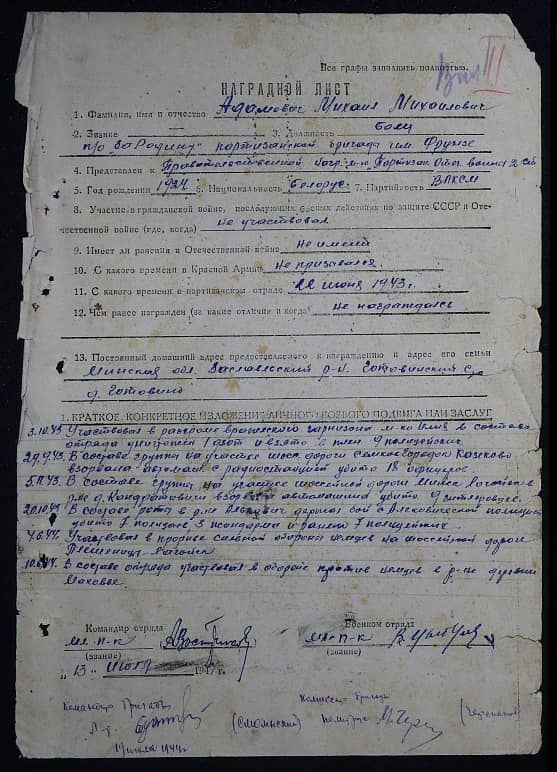 Все графы заполнить полностью.
III
НАГРАДНОЙ ЛИСТ
1. Фамилия, имя и отчество Адамович Михаил Михайлович
2. Звание — 3. Должность боец
п/о "За Родину" партизанской бригады им Фрунзе
4. Представлен к Правительственной нагр. м-ль Партизан. Отеч. войны 2 ст
5. Год рождения 1924 6. Национальность Белорус. 7. Партийность ВЛКСМ
8. Участие в гражданской войне, последующих боевых действиях по защите СССР и Оте-
чественной войне (где, когда) Не участвовал
9. Имеет ли ранения в Отечественной войне Не имеет
10. С какого времени в Красной Армии Не призывался
11. С какого времени в партизанском отряде июня 1943 г.
12. Чем ранее награжден (за какие отличия и когда) Не награждался
13. Постоянный домашний адрес представляемого к награждению и адрес его семьи
Минская обл. Заславльский р-н. Готовинский с/с
д. Готовино
1. КРАТКОЕ, КОНКРЕТНОЕ ИЗЛОЖЕНИЕ ЛИЧНОГО БОЕВОГО ПОДВИГА ИЛИ ЗАСЛУГ
3.10.43 Участвовал в разгроме вражеского гарнизона м-ко в составе
отряда уничтожен 1 дзот и взято в плен 9 полицейских
29.9.43. В составе группы на участке шос. дороги Козеково
взорвана автомаш. с радиостанцией убито 18
5.11.43. В составе группы на участке шоссейной дороги Минск Логойск
р-не д. Кондратовичи взорвана автомашина убито 9 гитлеровцев.
20.10.43 В составе роты в р-не держал бой с полицией
убито 7 полицаев, 3 жандарма и ранен 7 полицейских.
7.6.44. Участвовал в прорыве сильной обороны немцев на шоссейной дороге
Плещеницы Логойск
10.6.44. В составе отряда участвовал в обороне против немцев в р-не деревни
Маковье.
Командир отряда Военком отряда
мл. п-к мл. п-к
(звание) (звание)
„13 июля 194 г.
Командир бригады Комиссар бригады
(Смоленский)
июля 1944 г.